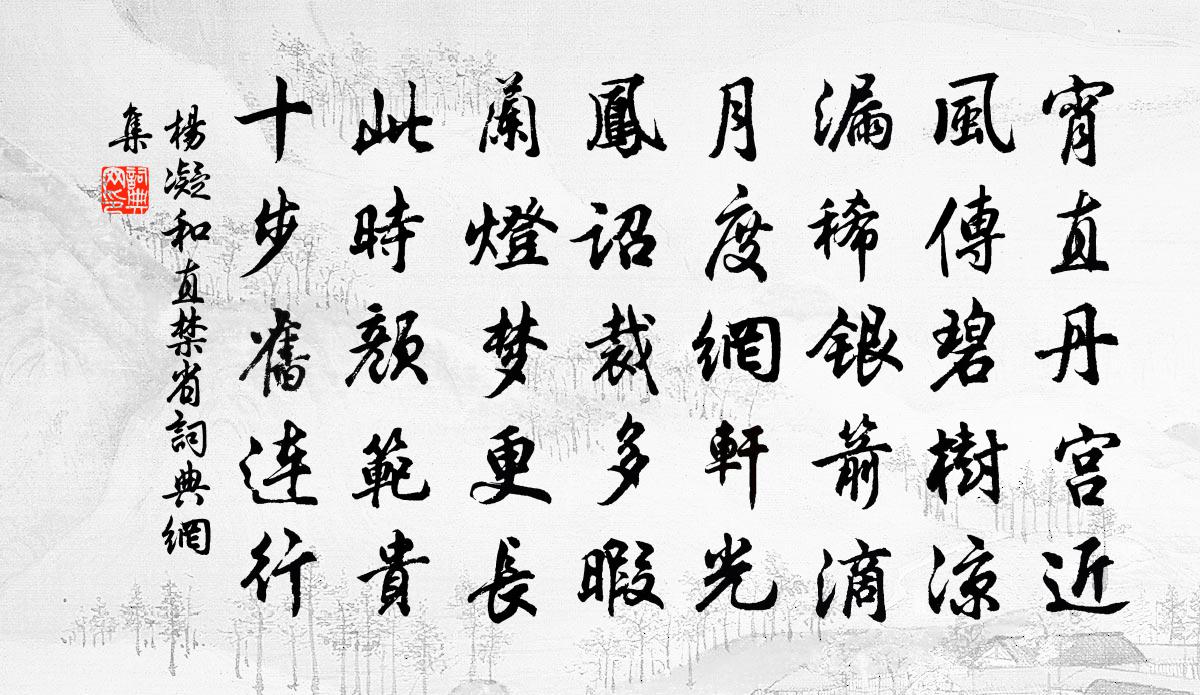 宵直丹宫近
風傳碧樹凉
漏稀銀箭滴
月度網軒光
鳳詔裁多暇
蘭燈梦更長
此時顏範貴
十步舊連行
楊凝和直禁省詞典網
集
詞典網印